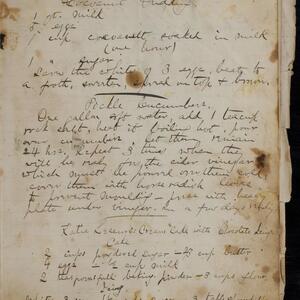 Cocoanut Pudding
1 qt. milk
5 eggs
1 cup cocoanut soaked in milk
(one hour)
1 " sugar
Save the whites of 3 eggs, beat to
a froth, sweeten, spread on top & brown.
Pickle Cucumbers.
One gallon soft water, add 1 teacup
rock salt, heat it boiling hot, pour
over cucumbers. Let them remain
24 hrs. Repeat 3 times when they
will be ready for the cider vinegar
which must be poured on them cold,
cover them with horse radish leaves
to prevent moulding - press with heavy
plate under vinegar. In a few days
Cream Cake with Chocolate
Cake
2 cups powdered sugar - 2/3 cup butter
4 eggs - 1/2 cup milk
2 teaspoonful baking powder - 3 cups flour
Icing